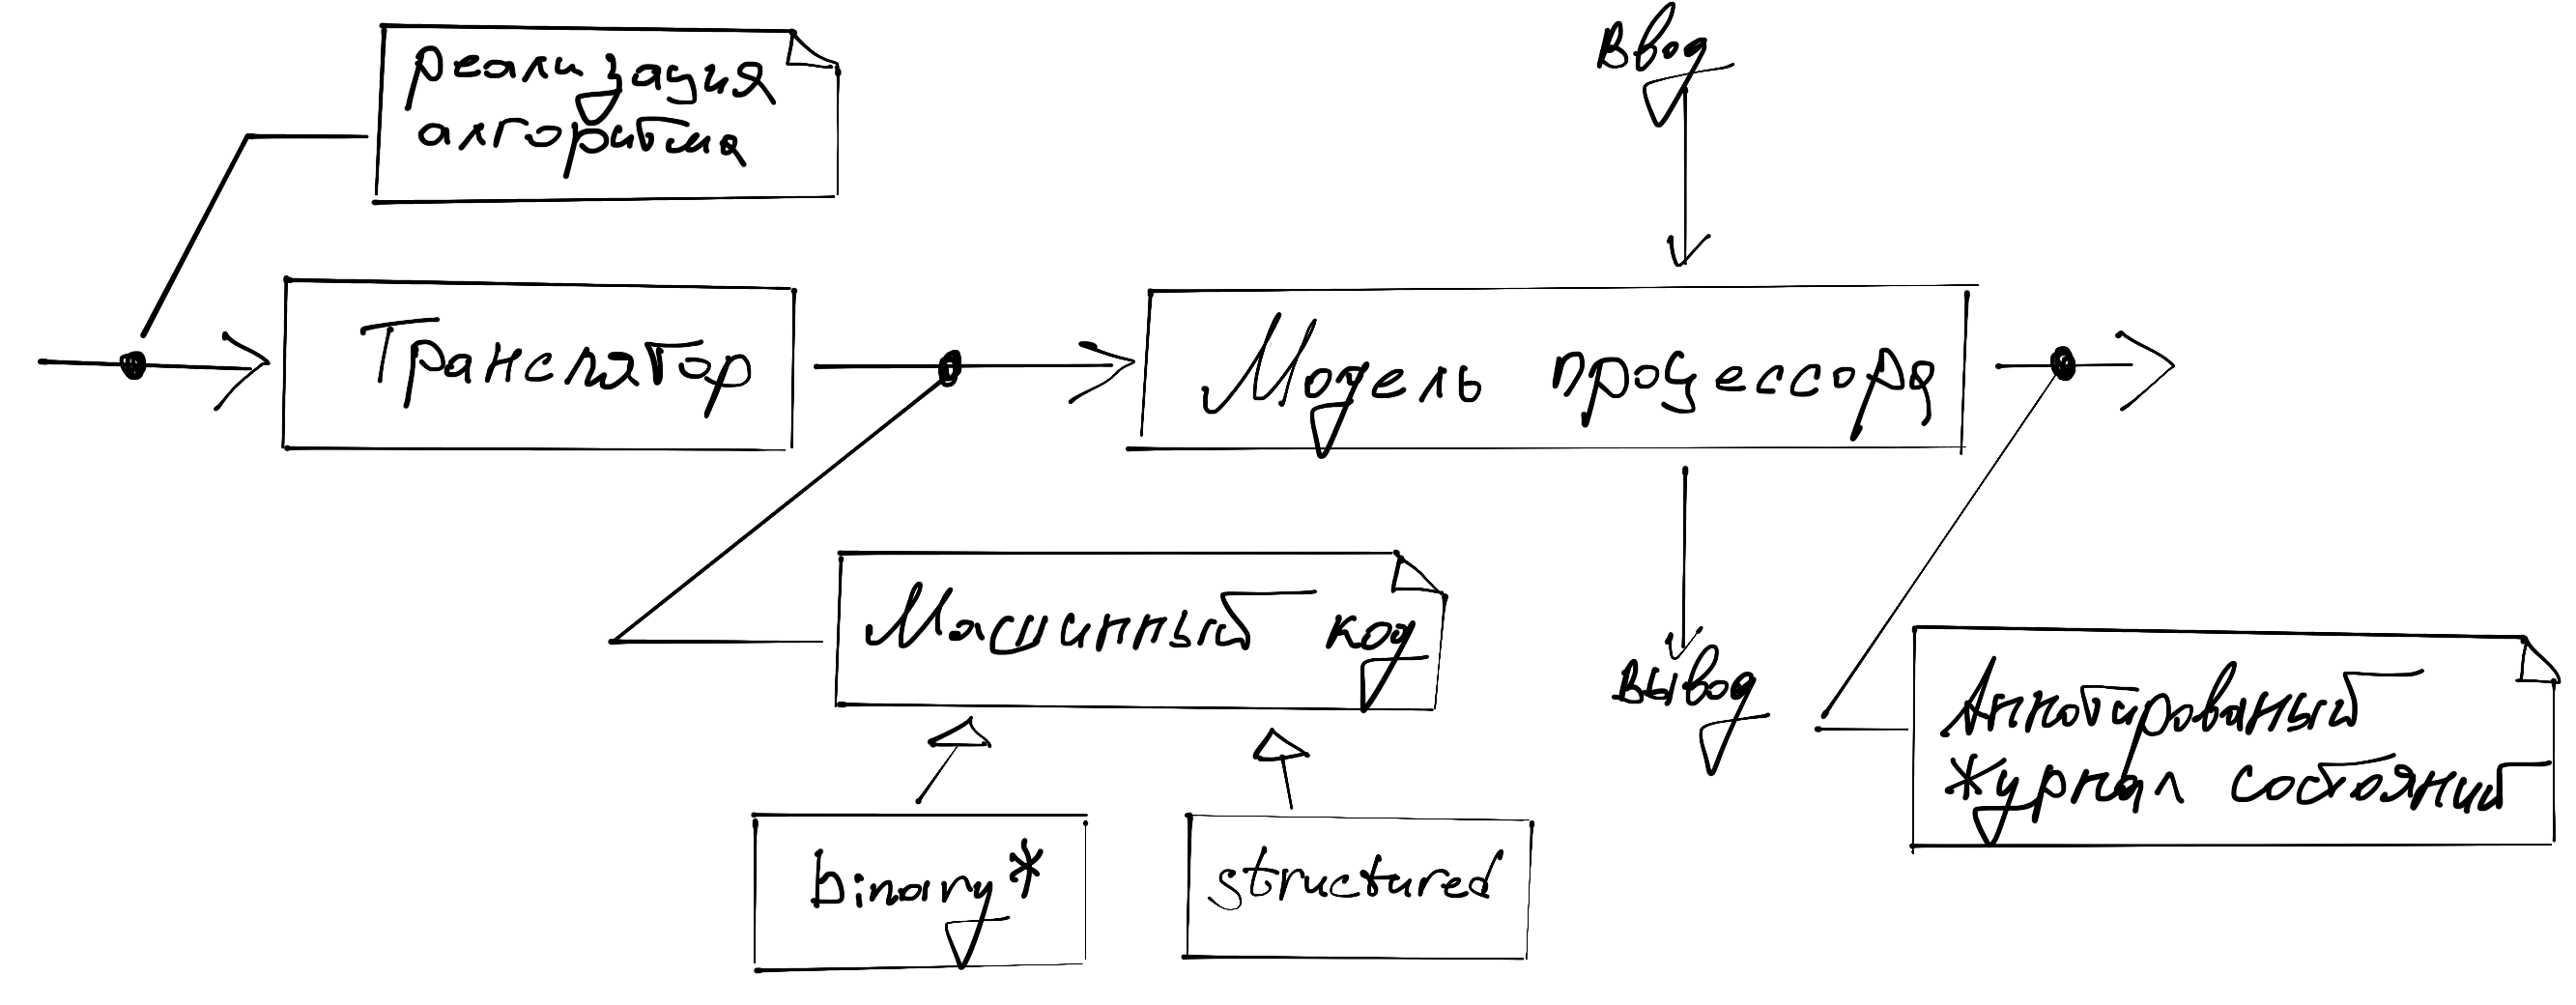 реализация
алгоритма
Ввод
Транслятор
Модель процессора
Машинный код
Вывод
Аннотированный
журнал состояний
binary*
structured